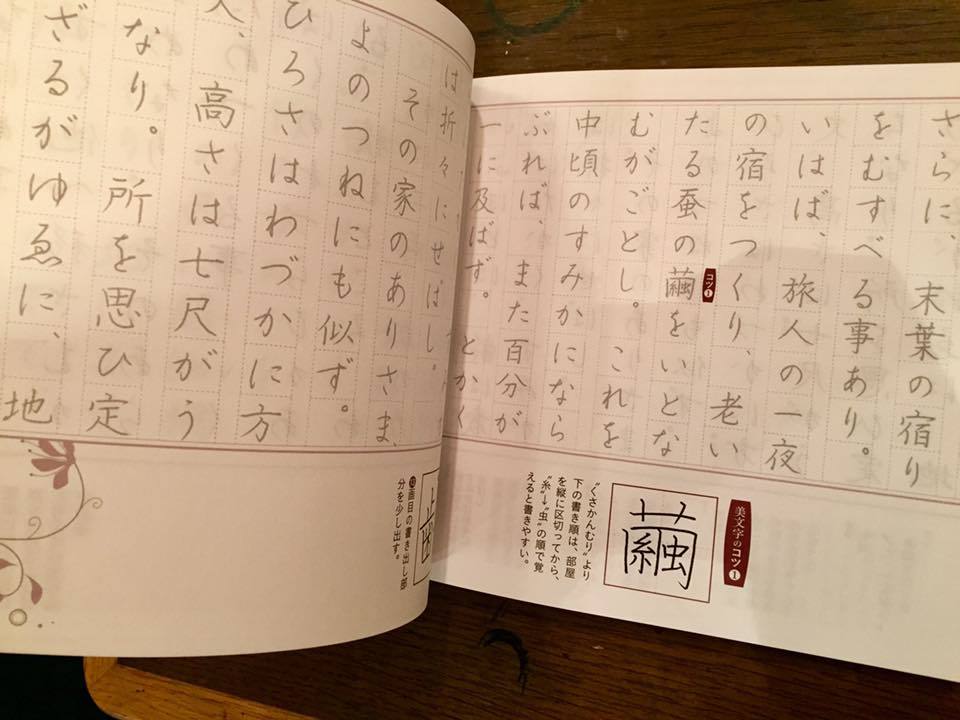 さらに、末葉の宿り
をむすべる事あり。
いはば、旅人の一夜
の宿をつくり、老い
たる蚕の繭をいとな
コツ❶
むがごとし。これを
中頃のすみかになら
ぶれば、また百分が
一に及ばず。とかく
美文字のコツ❶
繭
“くさかんむり”より
下の書き順は、部屋
を縦に区切ってから、
“糸”→“虫”の順で覚
えると書きやすい。
は折々にせばし。
その家のありさま、
よのつねにも似ず。
ひろさはわづかに方
、高さは七尺がう
なり。所を思ひ定
ざるがゆゑに、地
画目の書き出し部
分を少し出す。